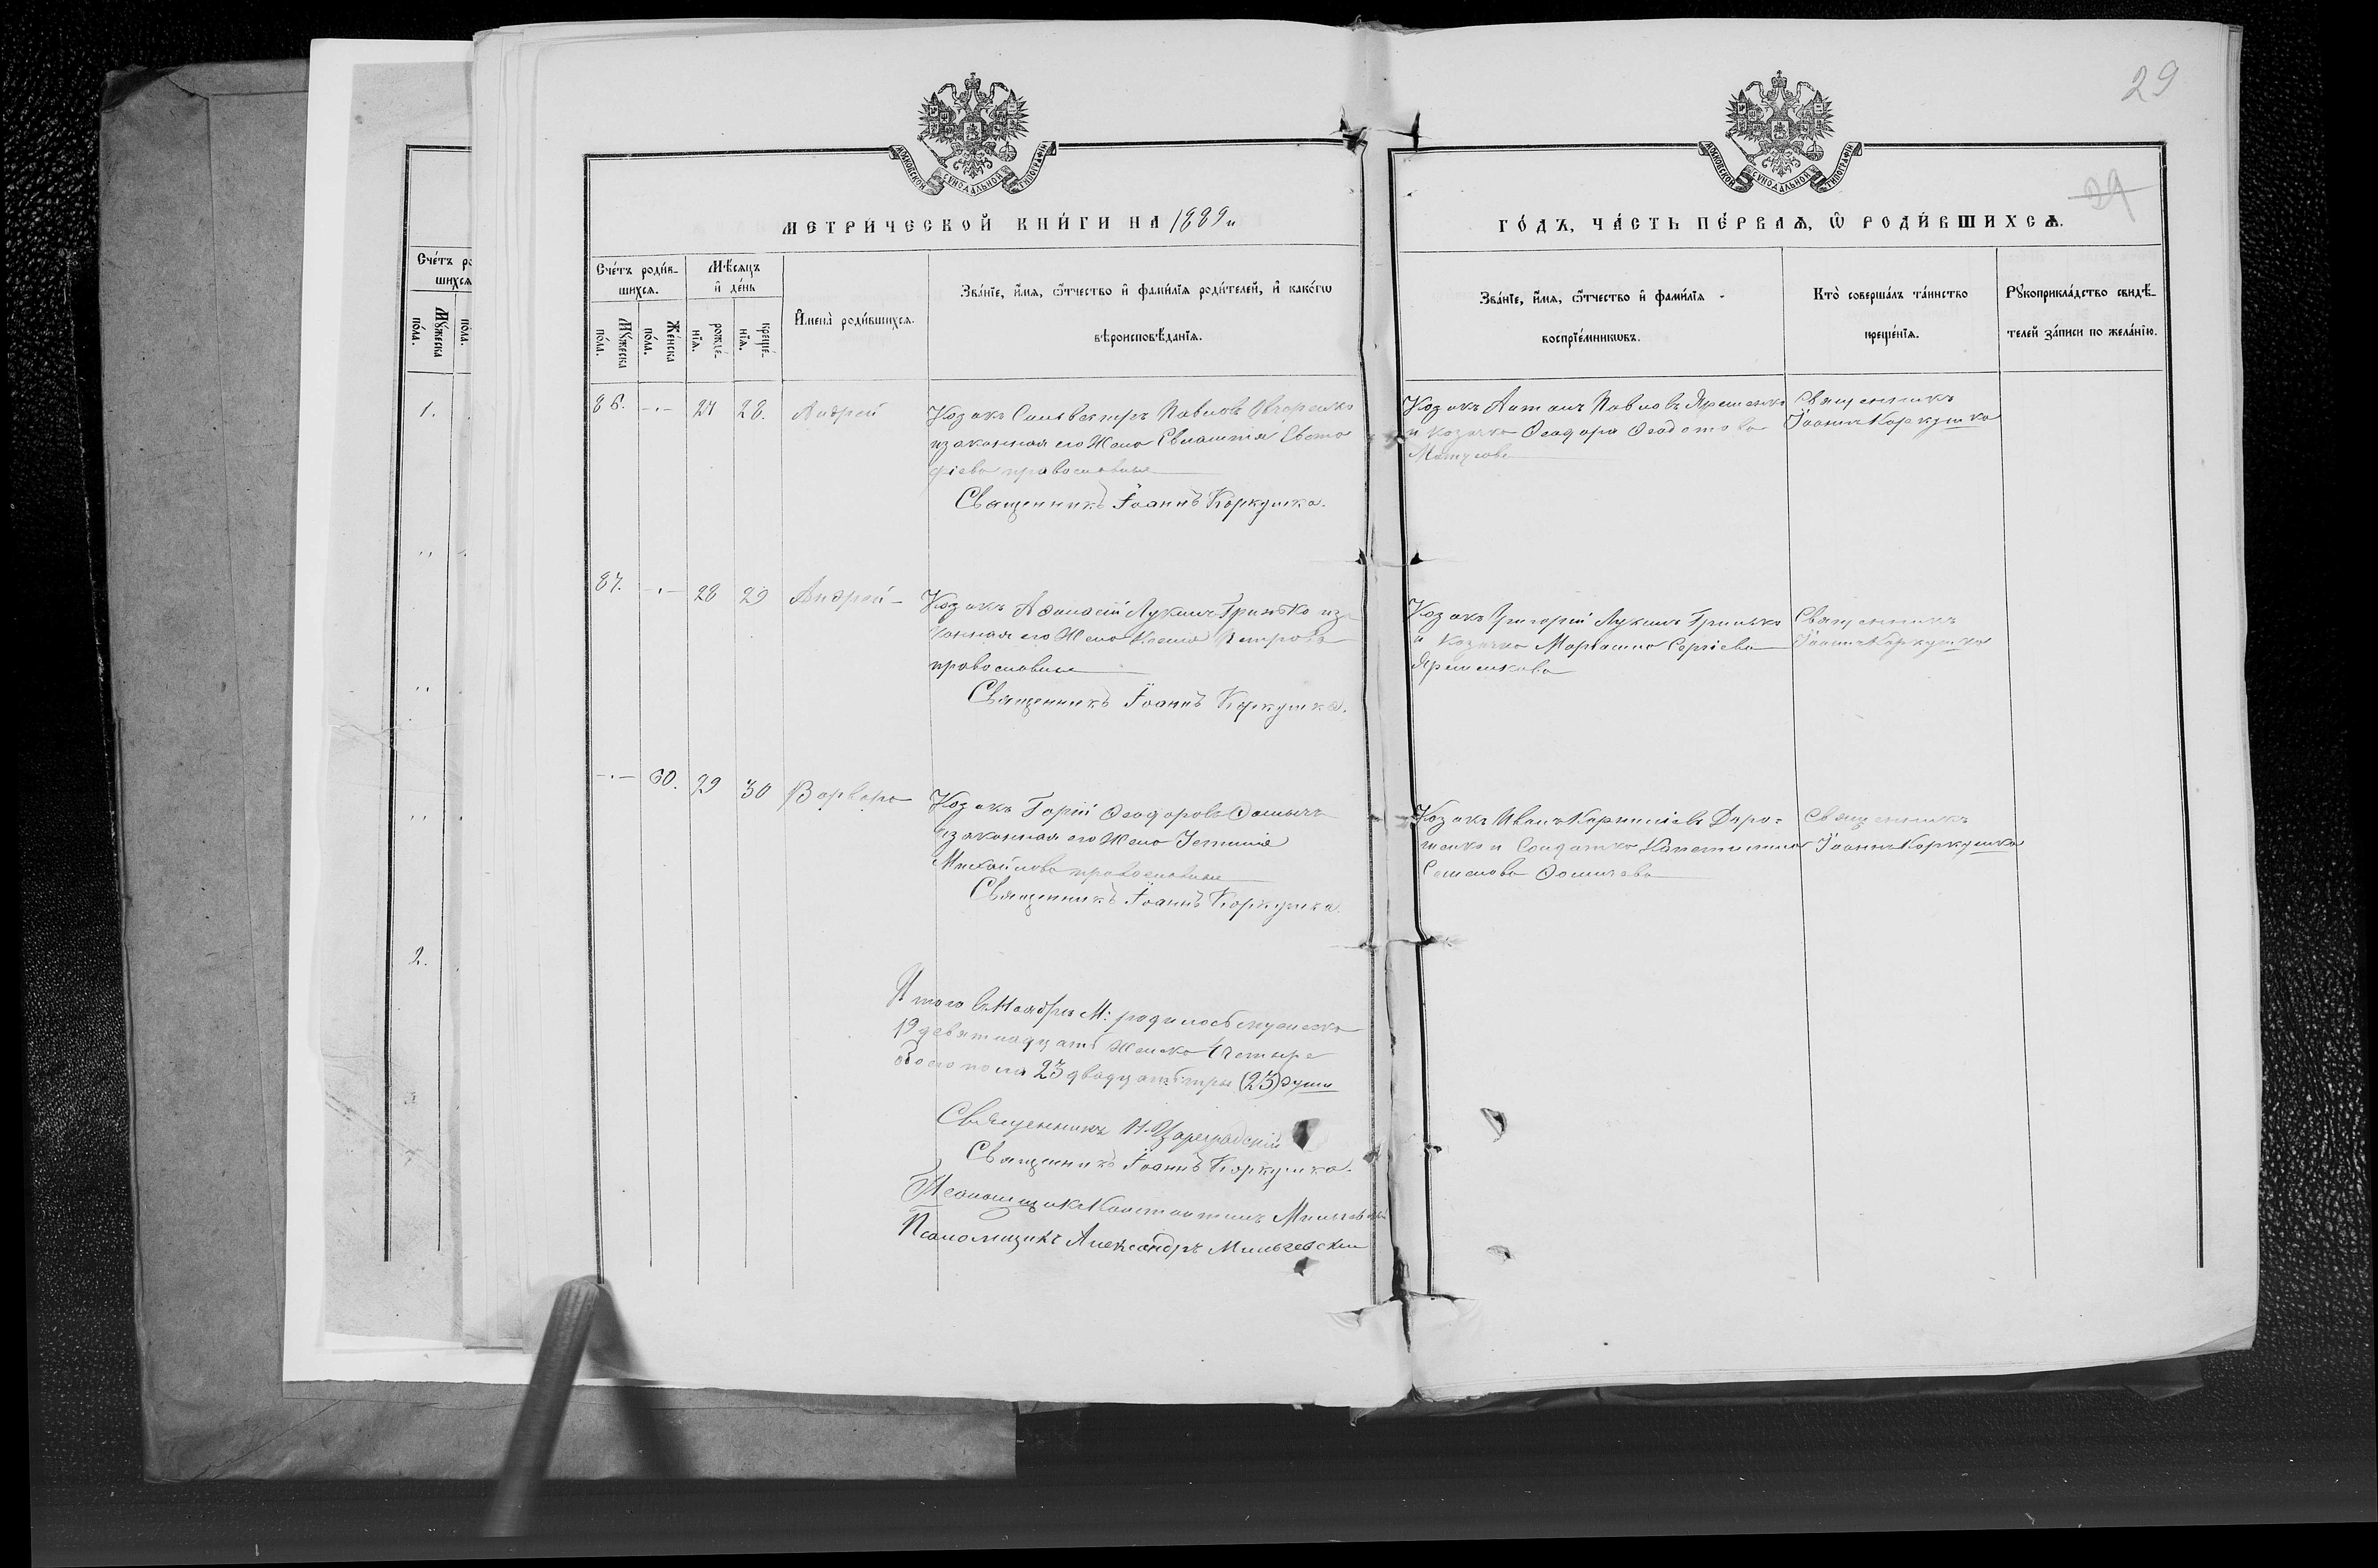 29
29
МОСКОВСКОЙ СѴНОДАЛЬНОЙ ТИПОГРАФІИ
МОСКОВСКОЙ СѴНОДАЛЬНОЙ ТИПОГРАФІИ
МЕТРИ́ЧЕСКОЙ КНИ́ГИ НА 1889
ГО́ДЪ, ЧА́СТЬ ПЕ́РВАѦ, Ѿ РОДИ́ВШИХСѦ.
Сче́тъ роди́в-
шихся.
Мѣ́сяцъ
и҆ де́нь
Мꙋ́жеска
по́ла.
Же́нска
по́ла.
рожде́-
нїѧ.
креще́-
нїѧ.
И҆мена̀ роди́вшихсѧ.
Зва́нїе, и҆́мѧ, ѻ҆́тчество и҆ фами́лїѧ роди́телей, и҆ како́гѡ
вѣроисповѣ́данїѧ.
Зва́нїе, и҆́мѧ, ѻ҆́тчество и҆ фами́лїѧ
воспрїе́мникѡвъ.
Кто̀ соверша́лъ та́инство
креще́нїѧ.
Рꙋкоприкла́дство свидѣ́-
телей за́писи по жела́нїю.
Мꙋ́жеска
по́ла.
1.
2.
86. 28. Андрей
Козакъ Сильвестръ Павловъ
изаконная его Жена Евлампія
православные
Священникъ Іоаннъ Коркушка.
Козакъ Антонъ Павловъ Яременко
и козачка Ѳеодора Ѳеодотова
Священникъ
Іоаннъ Коркушко
87. 28 29 Андрей
Козакъ Аѳанасій Лукинъ Гринько иза-
конная его Жена Ксенія Петрова
православные
Священникъ Іоаннъ Коркушка.
Козакъ Григорій Лукинъ Гринько
и козачка Маріанна Сергіева
Яременкова
Священникъ
Іоаннъ Коркушко
60. 29 30 Варвара
Козакъ Ѳеодоровъ
изаконная его Жена
Михайлова православные
Священникъ Іоаннъ Коркушка.
Козакъ Иванъ Корниліевъ Доро=
шенко и Солдатка
Семенова
Священникъ
Іоаннъ Коркушко
Итого въ Ноябрѣ М: родилось мужеска
19 девятнадцать женска 4 четыре
обоего пола 23 двадцать три (23) души
Священникъ Н. Цареградскій
Священникъ Іоаннъ Коркушка.
Псаломщикъ Константинъ
Псаломщикъ Александръ Мильчевскій